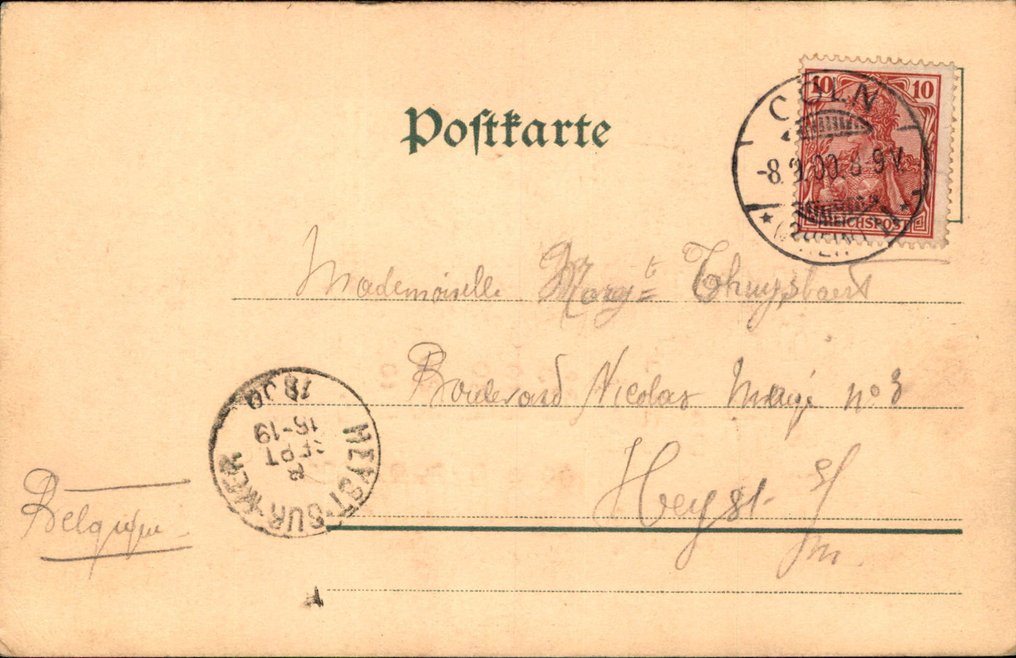 Postkarte
10 10
REICHSPOST
CÖLN
-8.9.00. 8-9V.
Mademoiselle
Boulevard Nicolas n° 3
Heyst s/m
Belgique
HEYST-SUR-MER
8
SEPT
18-19
1900